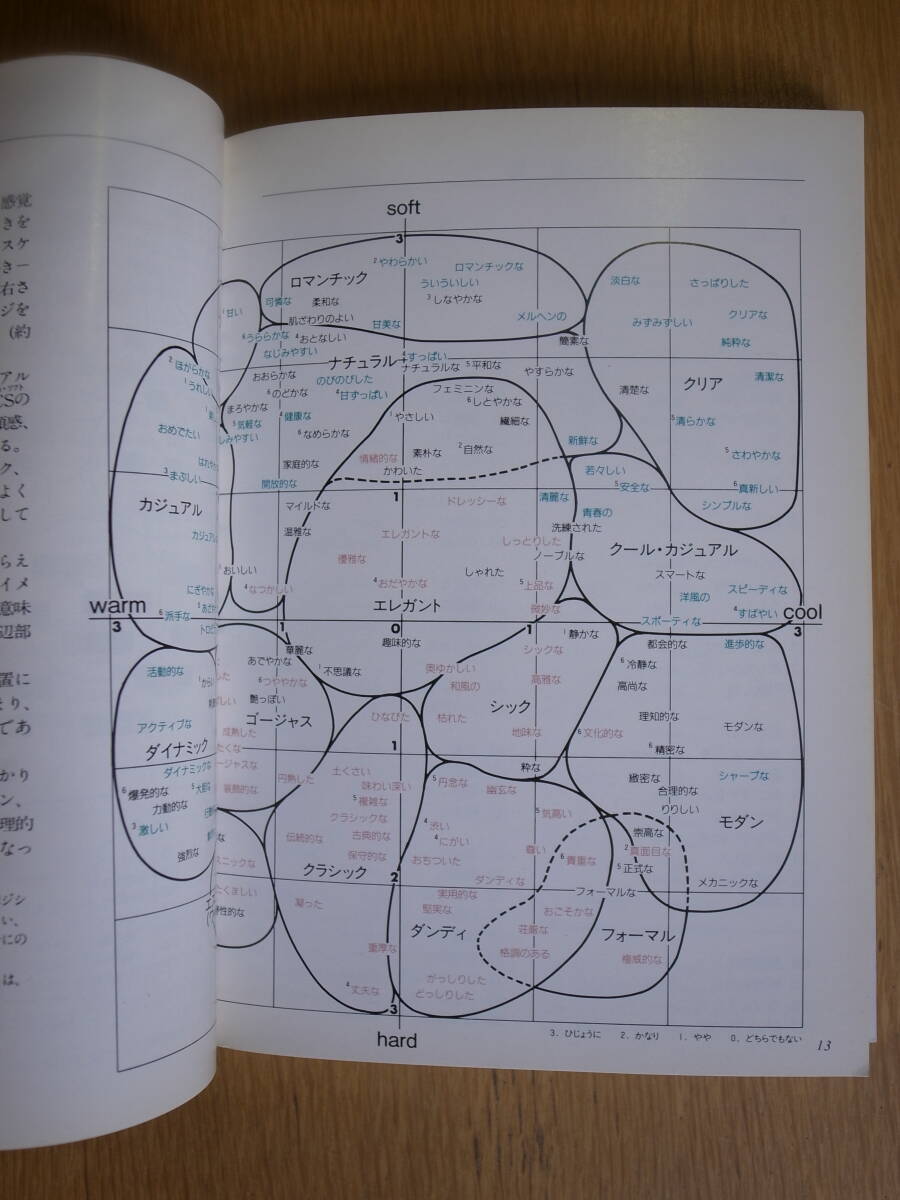 感覚
きを
スケ
きー
右さ
ジを
(約
アル
CSの
頭感、
る。
ク、
よく
して
らえ
イメ
意味
辺部
置に
まり、
であ
かり
ン、
理的
なっ
ポジシ
い、
にの
は、
soft
3
2やわらかい
ロマンチックな
ロマンチック
ういういしい
淡白な
さっぱりした
可憐な
柔和な
3しなやかな
1甘い
肌ざわりのよい
甘美な
メルヘンの
みずみずしい
クリアな
6うららかな
4おとなしい
簡素な
純粋な
なじみやすい
ナチュラル
すっぱい
2ほがらかな
ナチュラルな
5平和な
やすらかな
クリア
清潔な
1うれしい
おおらかな
のびのびした
フェミニンな
清楚な
6のどかな
4甘ずっぱい
6しとやかな
まろやかな
4健康な
1やさしい
繊細な
5清らかな
5気軽な
おめでたい
しみやすい
6なめらかな
素朴な
2自然な
新鮮な
5さわやかな
家庭的な
情緒的な
かわいた
若々しい
3まぶしい
開放的な
5安全な
6真新しい
1
カジュアル
マイルドな
ドレッシーな
清麗な
シンプルな
青春の
温雅な
エレガントな
洗練された
しっとりした
ノーブルな
クール・カジュアル
優雅な
3おいしい
しゃれた
スマートな
4なつかしい
4おだやかな
5上品な
スピーディな
洋風の
にぎやかな
warm
エレガント
微妙な
4すばやい
cool
6派手な
スポーティな
3
1
0
1
3
華麗な
趣味的な
1静かな
都会的な
進歩的な
活動的な
あでやかな
1不思議な
奥ゆかしい
シックな
6冷静な
6つややかな
和風の
高雅な
高尚な
艶っぽい
シック
アクティブな
ゴージャス
ひなびた
枯れた
理知的な
モダンな
成熟した
地味な
6文化的な
ダイナミック
1
6精密な
ダイナミックな
土くさい
粋な
円熟した
味わい深い
5円念な
緻密な
シャープな
6爆発的な
装飾的な
5複雑な
幽玄な
合理的な
力動的な
クラシックな
5気高い
りりしい
モダン
3激しい
4渋い
崇高な
伝統的な
古典的な
4にがい
2真面目な
強烈な
保守的な
おちついた
尊い
6貴重な
5正式な
クラシック
2
ダンディな
フォーマルな
メカニックな
たくましい
実用的な
凝った
堅実な
おごそかな
ダンディ
荘厳な
フォーマル
重厚な
格調のある
権威的な
がっしりした
4丈夫な
どっしりした
3
hard
3. ひじょうに 2. かなり 1. やや 0. どちらでもない
13